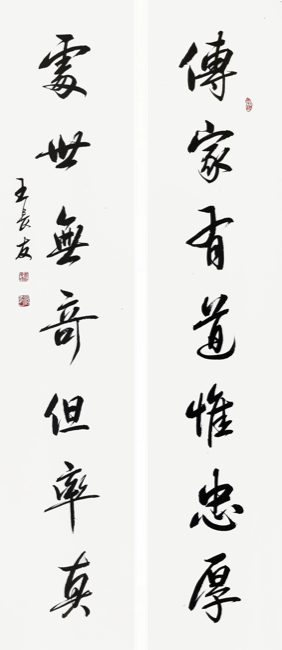 傳家有道惟忠厚
處世無奇但率真
王長友